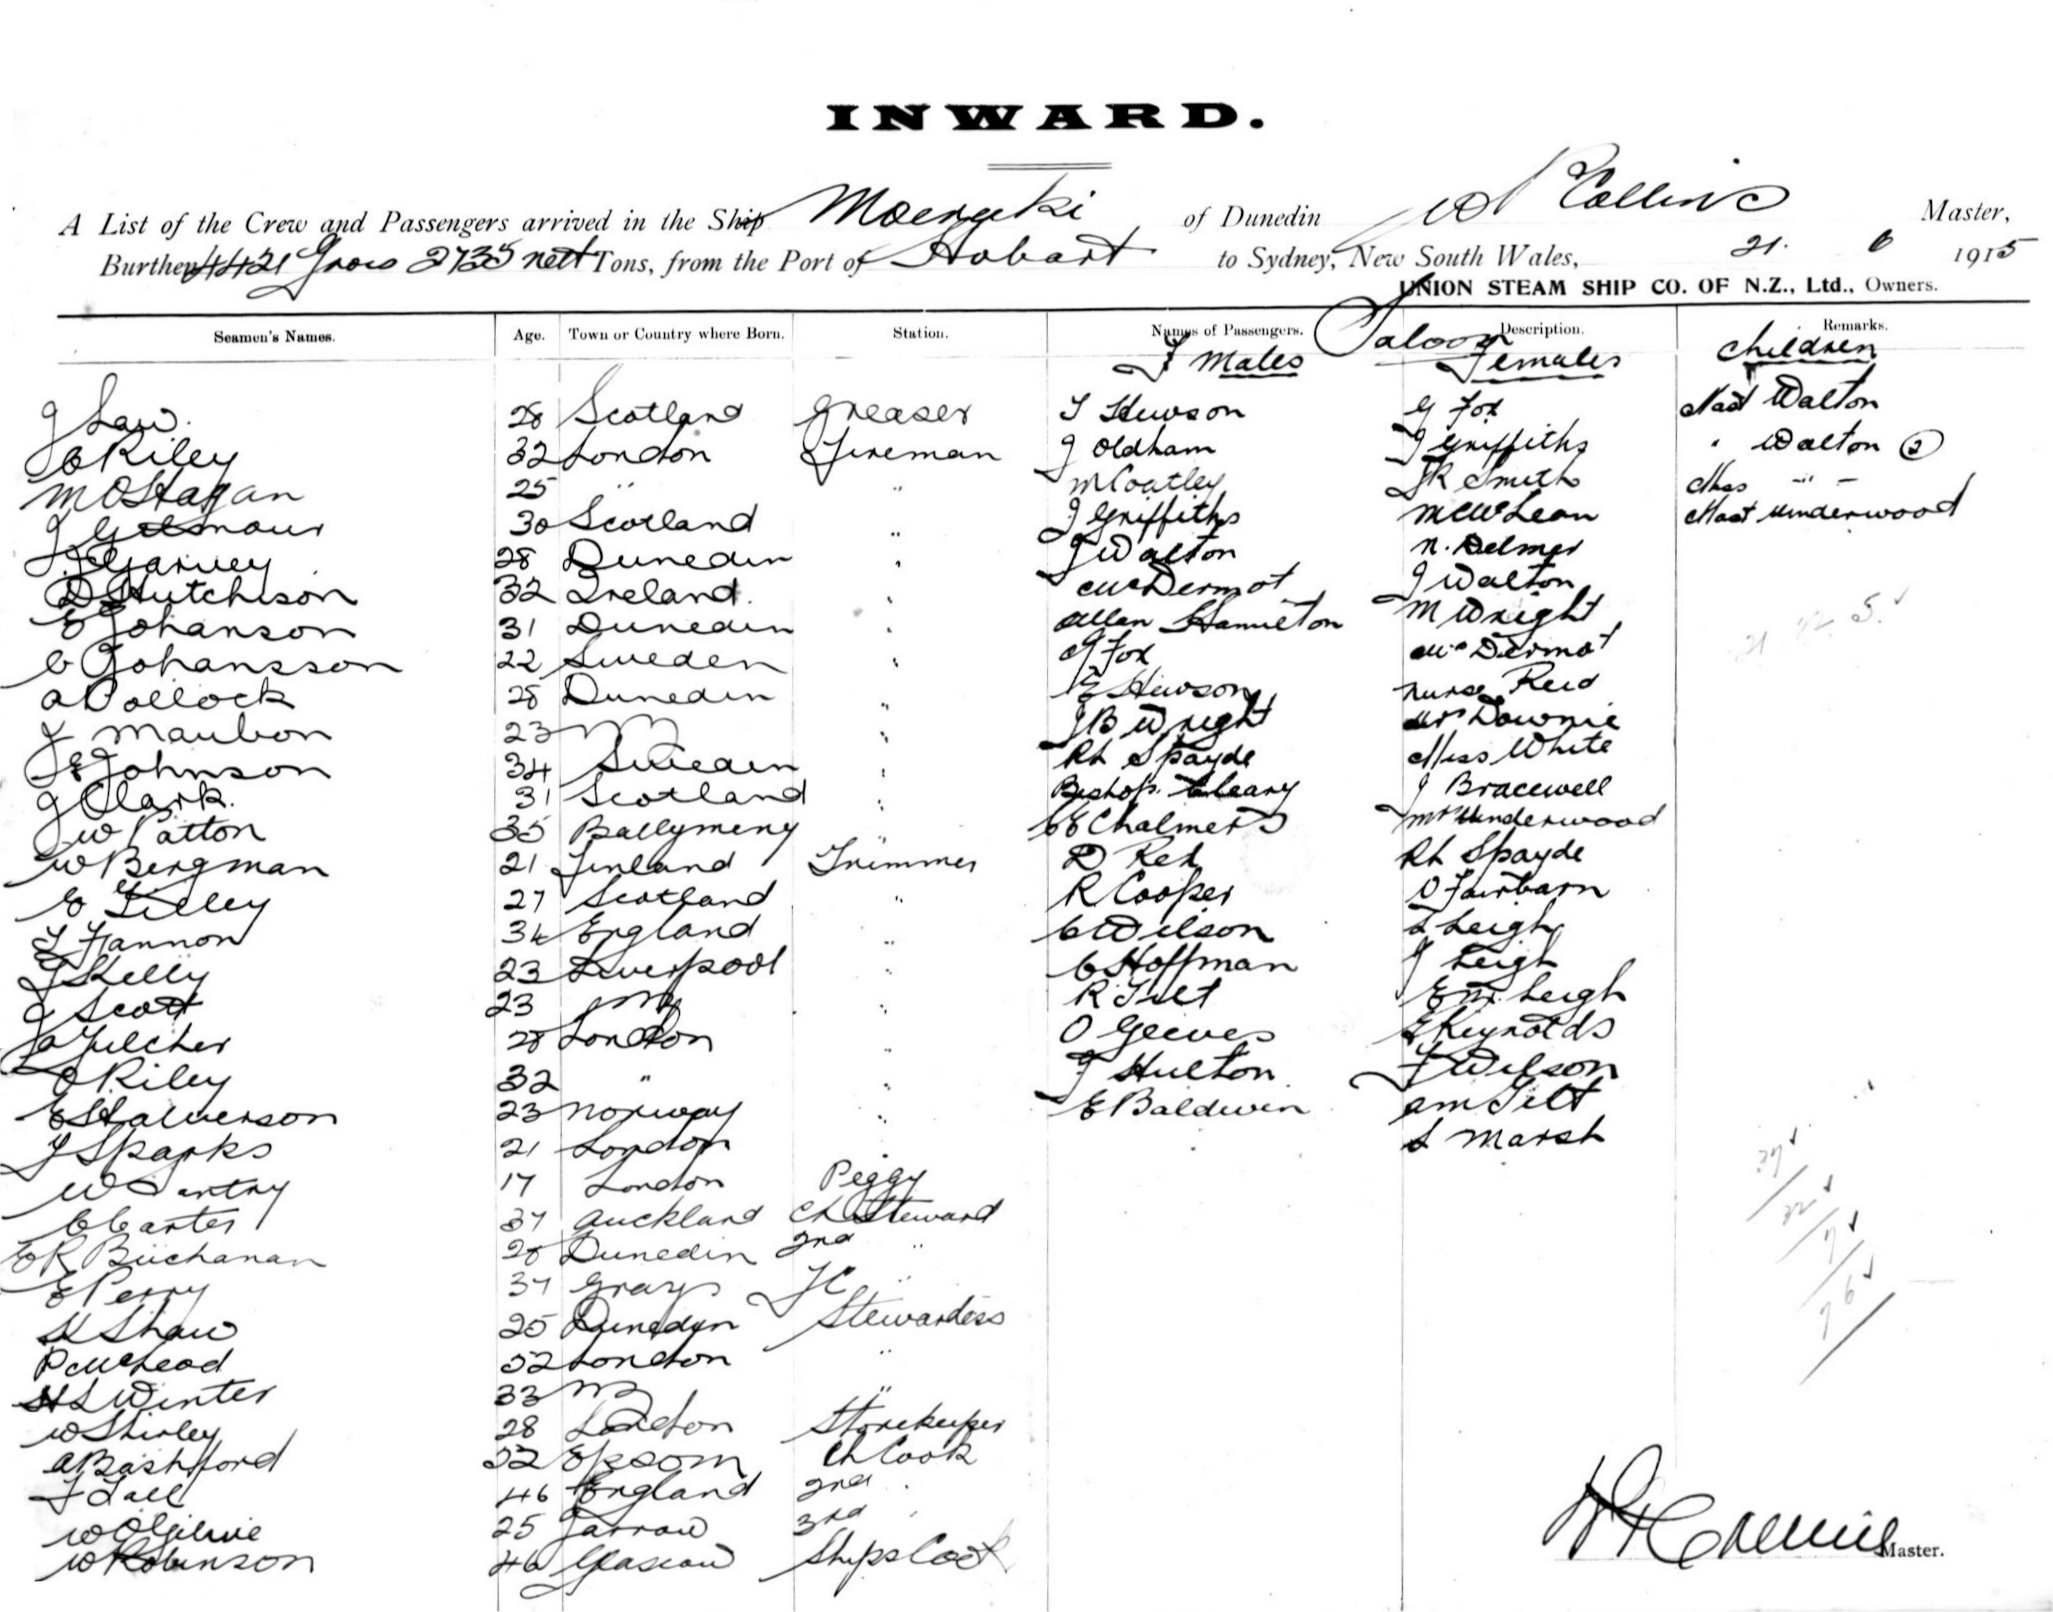 INWARD.
A List of the Crew and Passengers arrived in the Ship Moeraki of Dunedin Collins Master,
Burthen 4421 Gross 2735 nett Tons, from the Port of Hobart to Sydney, New South Wales, 21. 6 1915
UNION STEAM SHIP CO. OF N.Z., Ltd., Owners.
Seamen's Names. Age. Town or Country where Born. Station. Names of Passengers. Saloon Description. Remarks.
Males Females Children
J Law. 28 Scotland Greaser T Hewson G Fox Mast Walton
C Riley 32 London Fireman J Oldham J Griffiths " Walton (2)
M O'Hagan 25 " " M Coatley J R Smith Miss " "
J Gilmour 30 Scotland " J Griffiths McLean Mast Underwood
J Garvey 28 Dunedin " J Walton N. Delmer
D Hutchison 32 Ireland. " McDermot J Walton
E Johanson 31 Dunedin " Allan Hamilton M Wright
C Johansson 22 Sweden " G Fox McDermot
A Pollock 28 Dunedin " E Hewson Nurse Reid
J Maubon 23 " J B Wright Mrs Downie
E Johnson 34 Sweden " Rh Spayde Miss White
J Clark. 31 Scotland " Bishop Cleary J Bracewell
W Patton 35 Ballymeny " C E Chalmers Mrs Underwood
W Bergman 21 Finland Trimmer D Rex Rh Spayde
E Lilley 27 Scotland " R Cooper O Fairbarn
T Fannon 34 England " C Wilson L Leigh
J Kelly 23 Liverpool " C Hoffman J Leigh
J Scott 23 " R Tilt E M. Leigh
A Fulcher 28 London " O Geeves E Reynolds
C Riley 32 " " J Hulton F Wilson
E Halverson 23 Norway " E Baldwin A M Tilt
J Sparks 21 London " S Marsh
W 17 London Peggy
C Carter 37 Auckland Ch Steward
E R Buchanan 28 Dunedin 2nd "
E Perry 37 Grays "
H Shaw 25 Dunedin Stewardess
P McLeod 52 London "
H L Winter 33 "
W Shirley 28 London Storekeeper
A Bashford 32 Epsom Ch Cook
46 England 2nd "
W Ogilvie 25 Jarrow 3rd "
W Robinson 46 Glasgow Ships Cook
Collins Master.